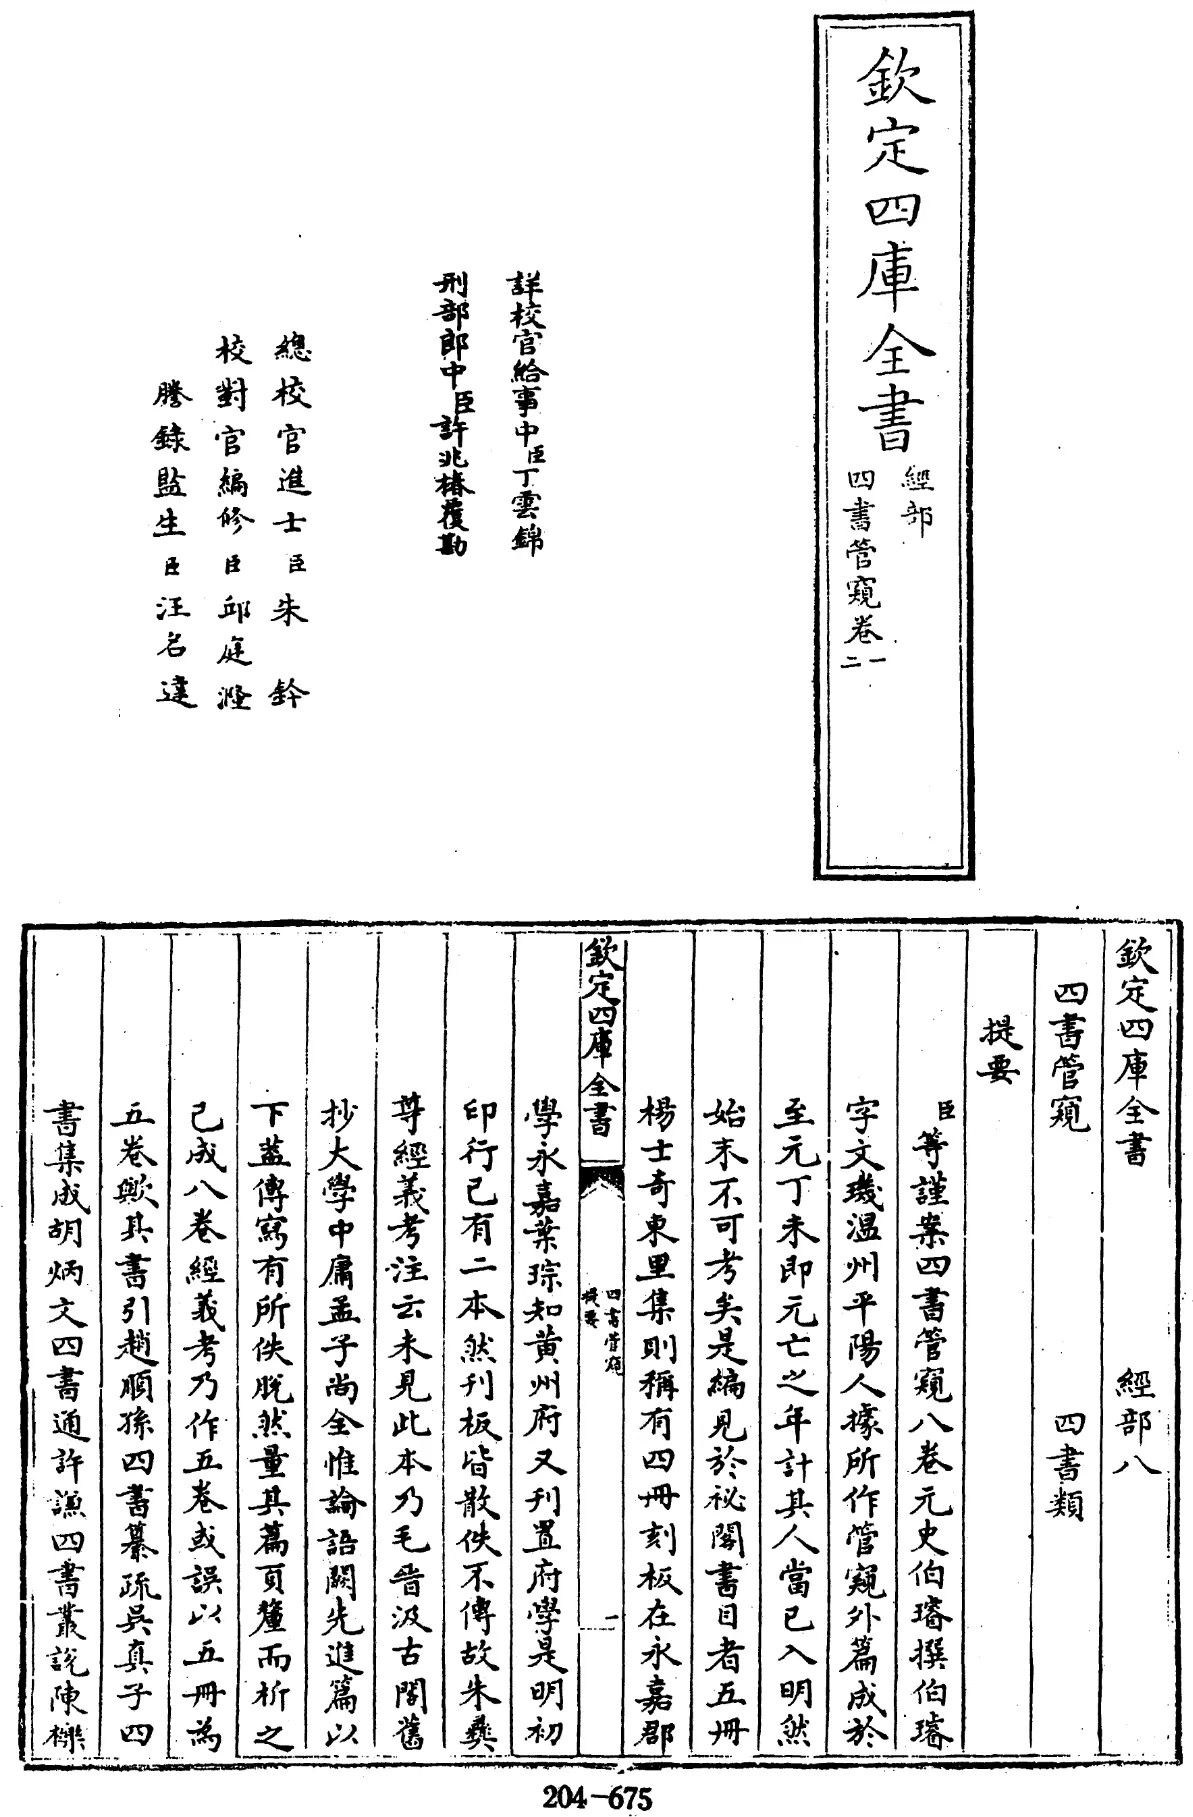 欽定四庫全書
經部
四書管窺卷一
二
詳校官給事中臣丁雲錦
刑部郎中臣許兆椿覆勘
總校官進士臣朱鈐
校對官編修臣邱庭漋
謄錄監生臣汪名達
欽定四庫全書 經部八
四書管窺 四書類
提要
臣等謹案四書管窺八卷元史伯璿撰伯璿
字文璣温州平陽人據所作管窺外篇成於
至元丁未即元亡之年計其人當已入明然
始末不可考矣是編見於祕閣書目者五冊
楊士奇東里集則稱有四冊刻板在永嘉郡
欽定四庫全書
四書管窺
提要
一
學永嘉葉琮知黄州府又刊置府學是明初
印行已有二本然刊板皆散佚不傳故朱彝
尊經義考注云未見此本乃毛晉汲古閣舊
抄大學中庸孟子尚全惟論語闕先進篇以
下蓋傳寫有所佚脫然量其篇頁釐而析之
已成八卷經義考乃作五卷或誤以五冊為
五卷歟其書引趙順孫四書纂疏吳真子四
書集成胡炳文四書通許謙四書叢說陳櫟
204-675